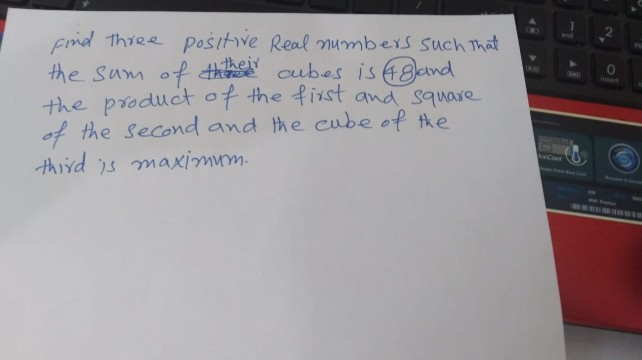 Find three positive Real numbers such that
the sum of their cubes is 48 and
the product of the first and square
of the second and the cube of the
third is maximum.
1
end
2
0
insert